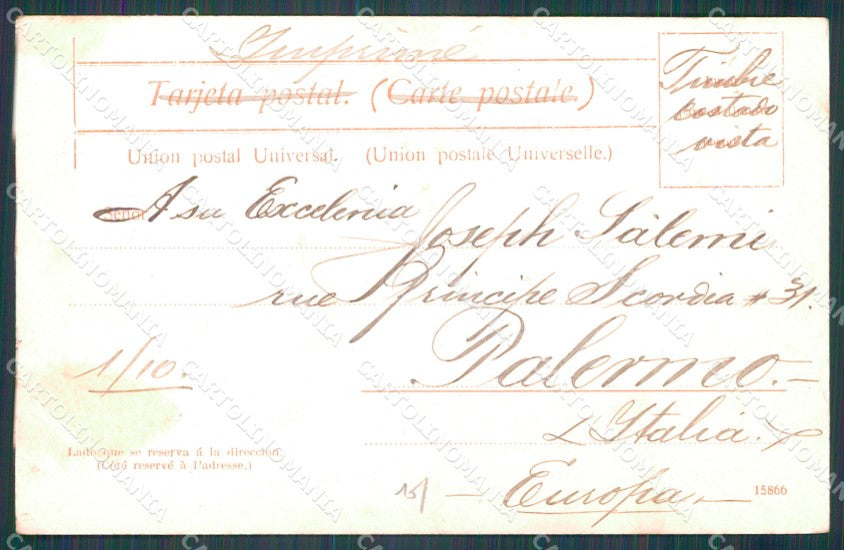 Imprimé
Tarjeta postal. (Carte postale)
Timbre
costado
vista
Union postal Universal. (Union postale Universelle.)
Señor A su Excelenia
Joseph Salemi
rue Principe Scordia # 31.
1/10.
Palermo.—
Italia.
Lado que se reserva á la dirección.
(Côté reservé à l'adresse.)
15/ — Europa — 15866
CARTOLINOMANIA